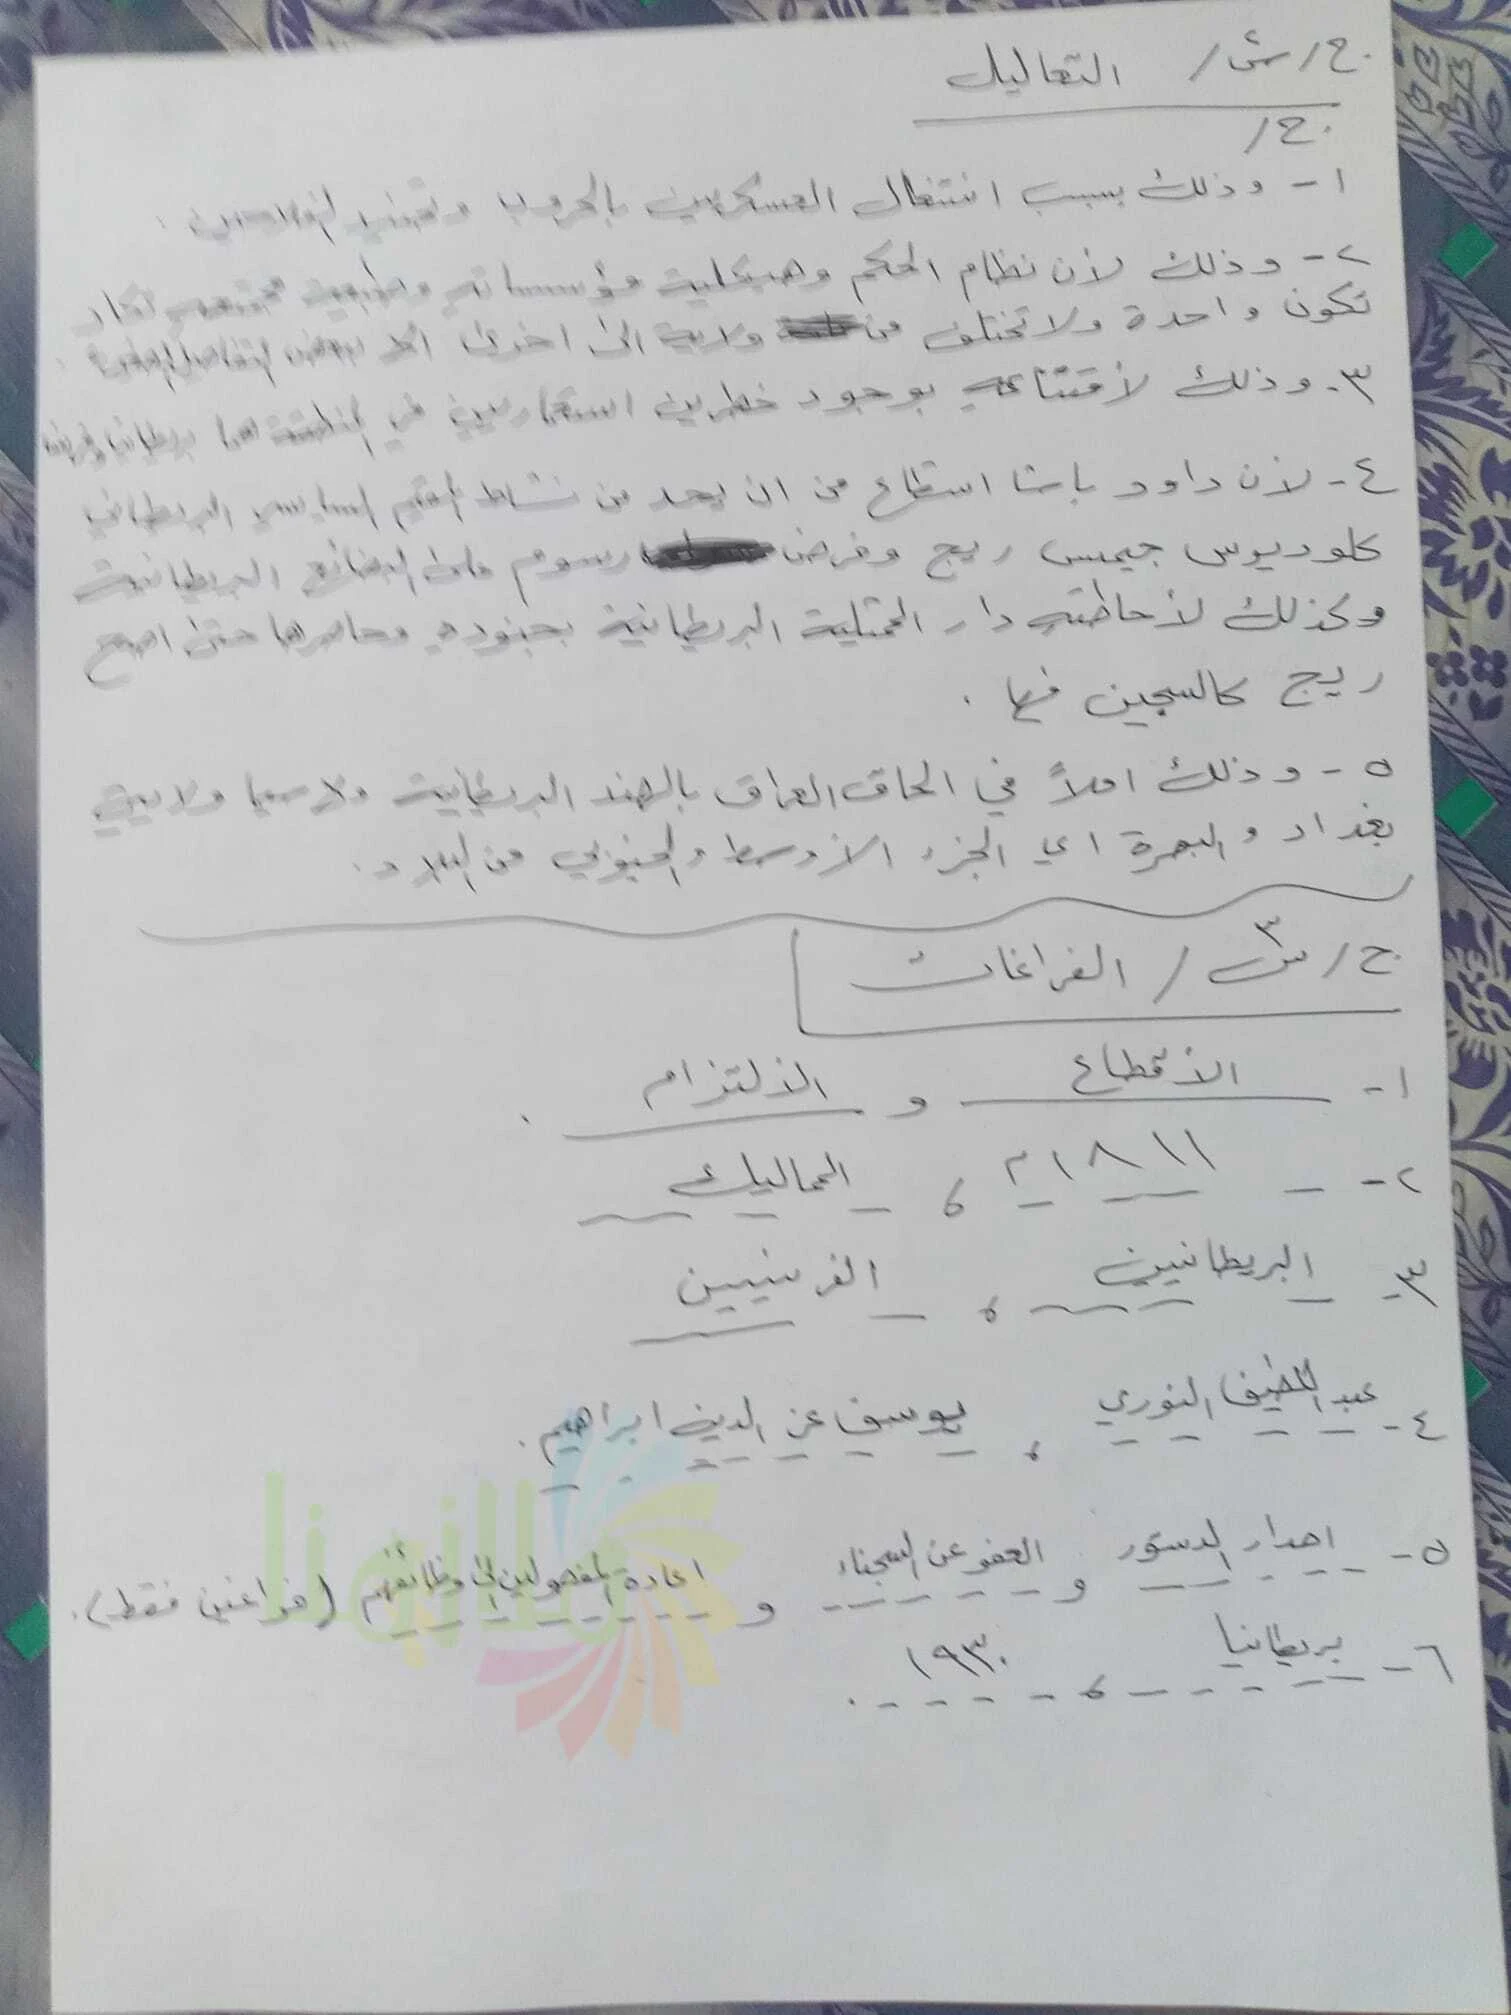 ج/ س/ التعاليل
ج/
١- وذلك بسبب انشغال العسكريين بالحروب وتجنيد الفلاحين.
٢- وذلك لأن نظام الحكم وهيكلية مؤسساته وطبيعة مجتمعه تكاد
تكون واحدة ولا تختلف من ولاية الى اخرى الا ببعض التفاصيل
٣- وذلك لأقتناعه بوجود خطرين استعماريين في المنطقة هما بريطانيا وفرنسا
٤- لأن داود باشا استطاع من ان يحد من نشاط المقيم السياسي البريطاني
كلوديوس جيمس ريج وفرض رسوم على البضائع البريطانية
وكذلك لأحاطته دار الممثلية البريطانية بجنوده وحاصرها حتى اصبح
ريج كالسجين فيها.
٥- وذلك املاً في الحاق العراق بالهند البريطانية ولاسيما ولايتي
بغداد والبصرة اي الجزء الاوسط والجنوبي من البلاد.
ج/ س٣ / الفراغات
١- الأقطاع و الألتزام.
٢- ١٨١١م ، المماليك
٣- البريطانيين ، الفرنسيين
٤- عبد اللطيف النوري ، يوسف عز الدين ابراهيم.
٥- اصدار الدستور و العفو عن السجناء و اعادة المفصولين الى وظائفهم (فراغين فقط).
٦- بريطانيا ، ١٩٣٠.
ملازمنا